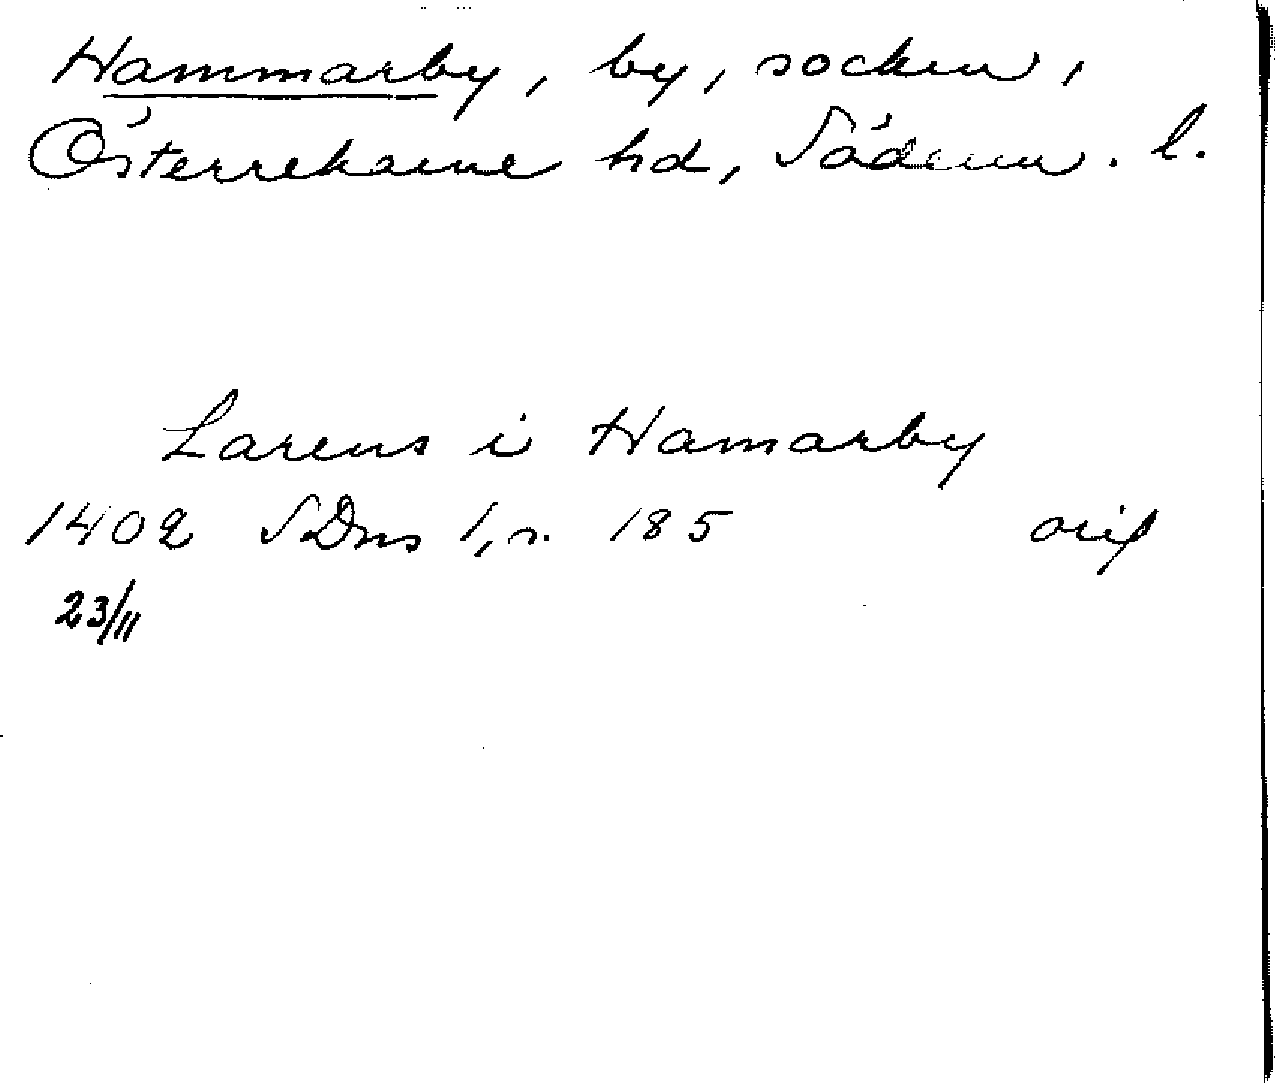 Hammarby, by, socken,
Österrekarne hd, Söderm. l.
Larens i Hamarby
1402 SDns 1, s. 185 orig
23/11